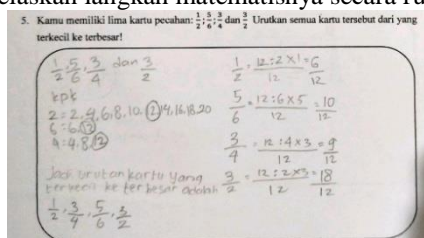 5. Kamu memiliki lima kartu pecahan: 1/2; 5/6; 3/4 dan 3/2 Urutkan semua kartu tersebut dari yang
terkecil ke terbesar!
1/2, 5/6, 3/4 dan 3/2
kpk
2 = 2.4.6.8.10.12.14.16.18.20
6 = 6.12
4 = 4.8.12
Jadi urutan kartu yang
terkecil ke terbesar adalah
1/2, 3/4, 5/6, 3/2
1/2 = 12:2×1/12 = 6/12
5/6 = 12:6×5/12 = 10/12
3/4 = 12:4×3/12 = 9/12
3/2 = 12:2×3/12 = 18/12